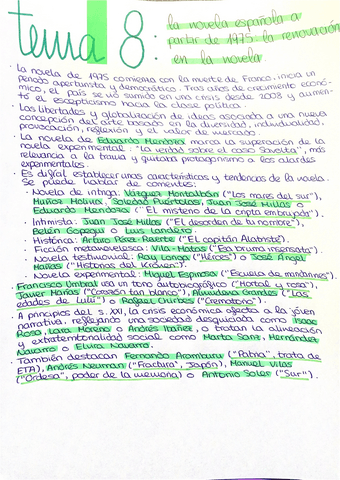 tema 8:
la novela española a
partir de 1975: la renovación
en la novela.
· La novela de 1975 comienza con la muerte de Franco, inicia un
periodo aperturista y democrático. Tras años de crecimiento econó-
mico, el país se vio sumido en una crisis desde 2008 y aumen-
tó el escepticismo hacia la clase política.
· Las libertades y globalización de ideas asociado a una nueva
concepción del arte basado en la diversidad, individualidad,
provocación, reflexión y el valor de mercado.
· La novela de Eduardo Mendoza marca la superación de la
novela experimental: "La verdad sobre el caso Savolta", más
relevancia a la trama y quitaba protagonismo a los alardes
experimentales.
· Es difícil establecer unas características y tendencias de la novela.
Se puede hablar de corrientes:
· Novela de intriga: Vázquez Montalbán ("Los mares del sur"),
Muñoz Molina, Soledad Puértolas, Juan José Millás o
Eduardo Mendoza ("El misterio de la cripta embrujada").
· Intimista: Juan José Millás ("El desorden de tu nombre"),
Belén Gopegui o Luis Landero.
· Histórica: Arturo Pérez-Reverte ("El capitán Alatriste").
· Ficción metanovelesca: Vila-Matas ("Esa bruma insensata").
· Novela testimonial: Ray Loriga ("Héroes") o José Ángel
Mañas ("Historias del Kronen").
· Novela experimental: Miguel Espinosa ("Escuela de mandarines").
· Francisco Umbral usa un tono autobiográfico ("Mortal y rosa"),
Javier Marías ("Corazón tan blanco"), Almudena Grandes ("Las
edades de Lulú") o Rafael Chirbes ("Crematorio").
· A principios del s. XXI, la crisis económica afecta a la joven
narrativa, reflejando una sociedad desigualada como Isaac
Rosa, Lara Moreno o Andrés Ibáñez, o tratan la alineación
y extratemporalidad social como Marta Sanz, Hernández
Navarro o Elvira Navarro.
· También destacan Fernando Aramburu ("Patria", trata de
ETA), Andrés Neuman ("Fractura", Japón), Manuel Vilas
("Ordesa", poder de la memoria) o Antonio Soler ("Sur").